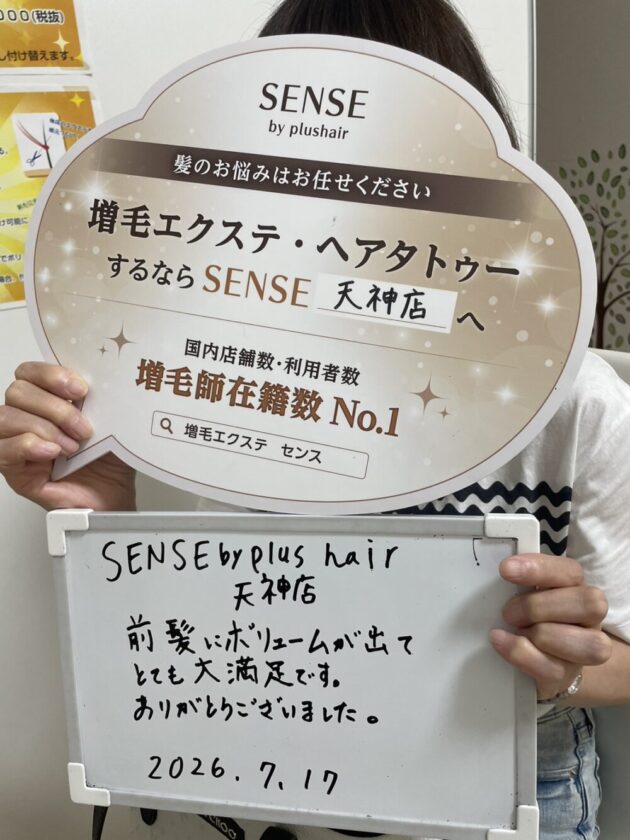 000(税抜)
し付け替えます。
SENSE
by plushair
髪のお悩みはお任せください
増毛エクステ・ヘアタトゥー
するなら SENSE 天神店 へ
国内店舗数・利用者数
増毛師在籍数 No.1
増毛エクステ センス
SENSE by plus hair
天神店
前髪にボリュームが出て
とても大満足です。
ありがとうございました。
2026.7.17